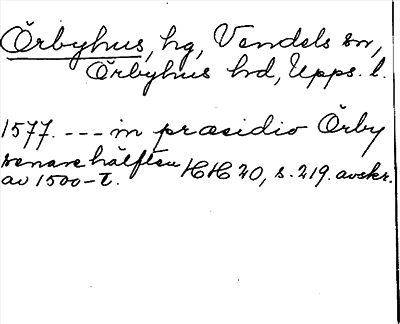 Örbyhus, hg, Vendels sn,
Örbyhus hd, Upps. l.
1577. --- in præsidio Örby
senare hälften
av 1500-t. HH 20, s. 219. avskr.